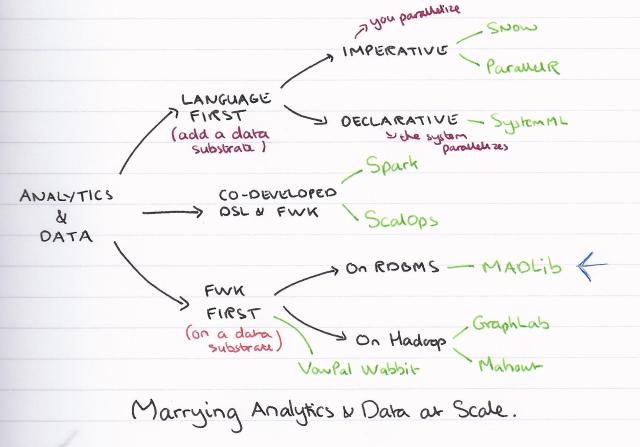 you parallelize
IMPERATIVE
SNOW
ParallelR
LANGUAGE
FIRST
(add a data
substrate)
DECLARATIVE
the system
parallelizes
SystemML
ANALYTICS
&
DATA
CO-DEVELOPED
DSL & FWK
Spark
ScalOps
FWK
FIRST
(on a data
substrate)
On RDBMS
MADLib
On Hadoop
GraphLab
Mahout
VowPal Wabbit
Marrying Analytics & Data at Scale.